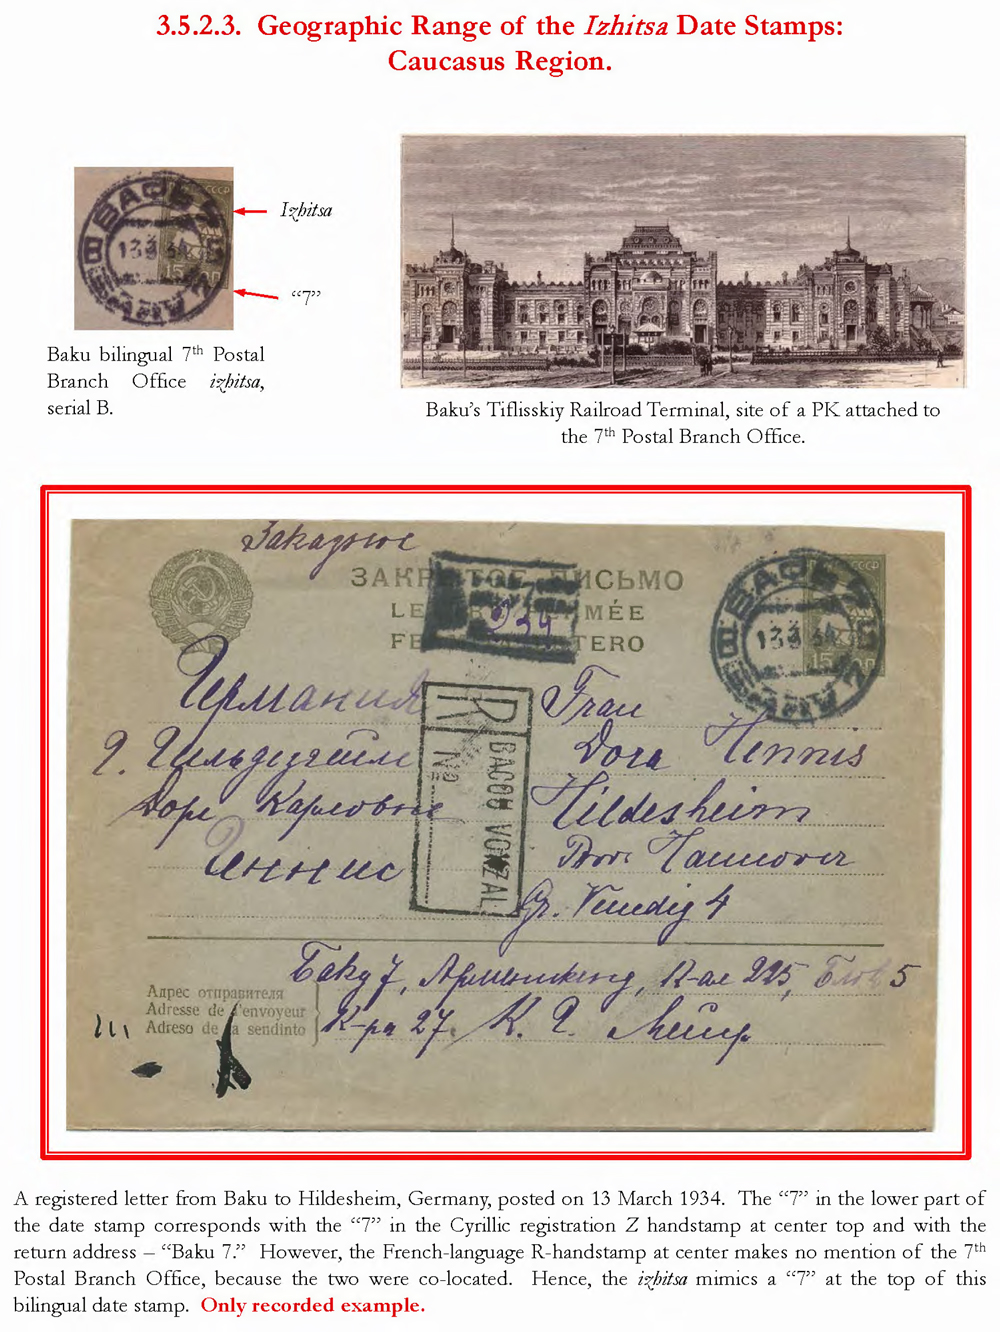 3.5.2.3. Geographic Range of the Izhitsa Date Stamps:
Caucasus Region.
Izhitsa
“7”
Baku bilingual 7th Postal
Branch Office izhitsa,
serial B.
Baku’s Tiflisskiy Railroad Terminal, site of a PK attached to
the 7th Postal Branch Office.
Заказное
ЗАКРЫТОЕ ПИСЬМО
LE MÉE
FE TERO
939
133 34
15
Германия
Frau
г. Гильдесгейм
Dora Hennis
Доре Карловне
Hildesheim
Иннис
Prov. Hannover
Gr. Venedig 4
R
№
BACOU VOKZAL
Баку 7, Арменикенд, К-ал 225, Блок 5
К-ра 27. К. Г. Мейер
Адрес отправителя
Adresse de l'envoyeur
Adreso de la sendinto
A registered letter from Baku to Hildesheim, Germany, posted on 13 March 1934. The “7” in the lower part of
the date stamp corresponds with the “7” in the Cyrillic registration Z handstamp at center top and with the
return address – “Baku 7.” However, the French-language R-handstamp at center makes no mention of the 7th
Postal Branch Office, because the two were co-located. Hence, the izhitsa mimics a “7” at the top of this
bilingual date stamp. Only recorded example.